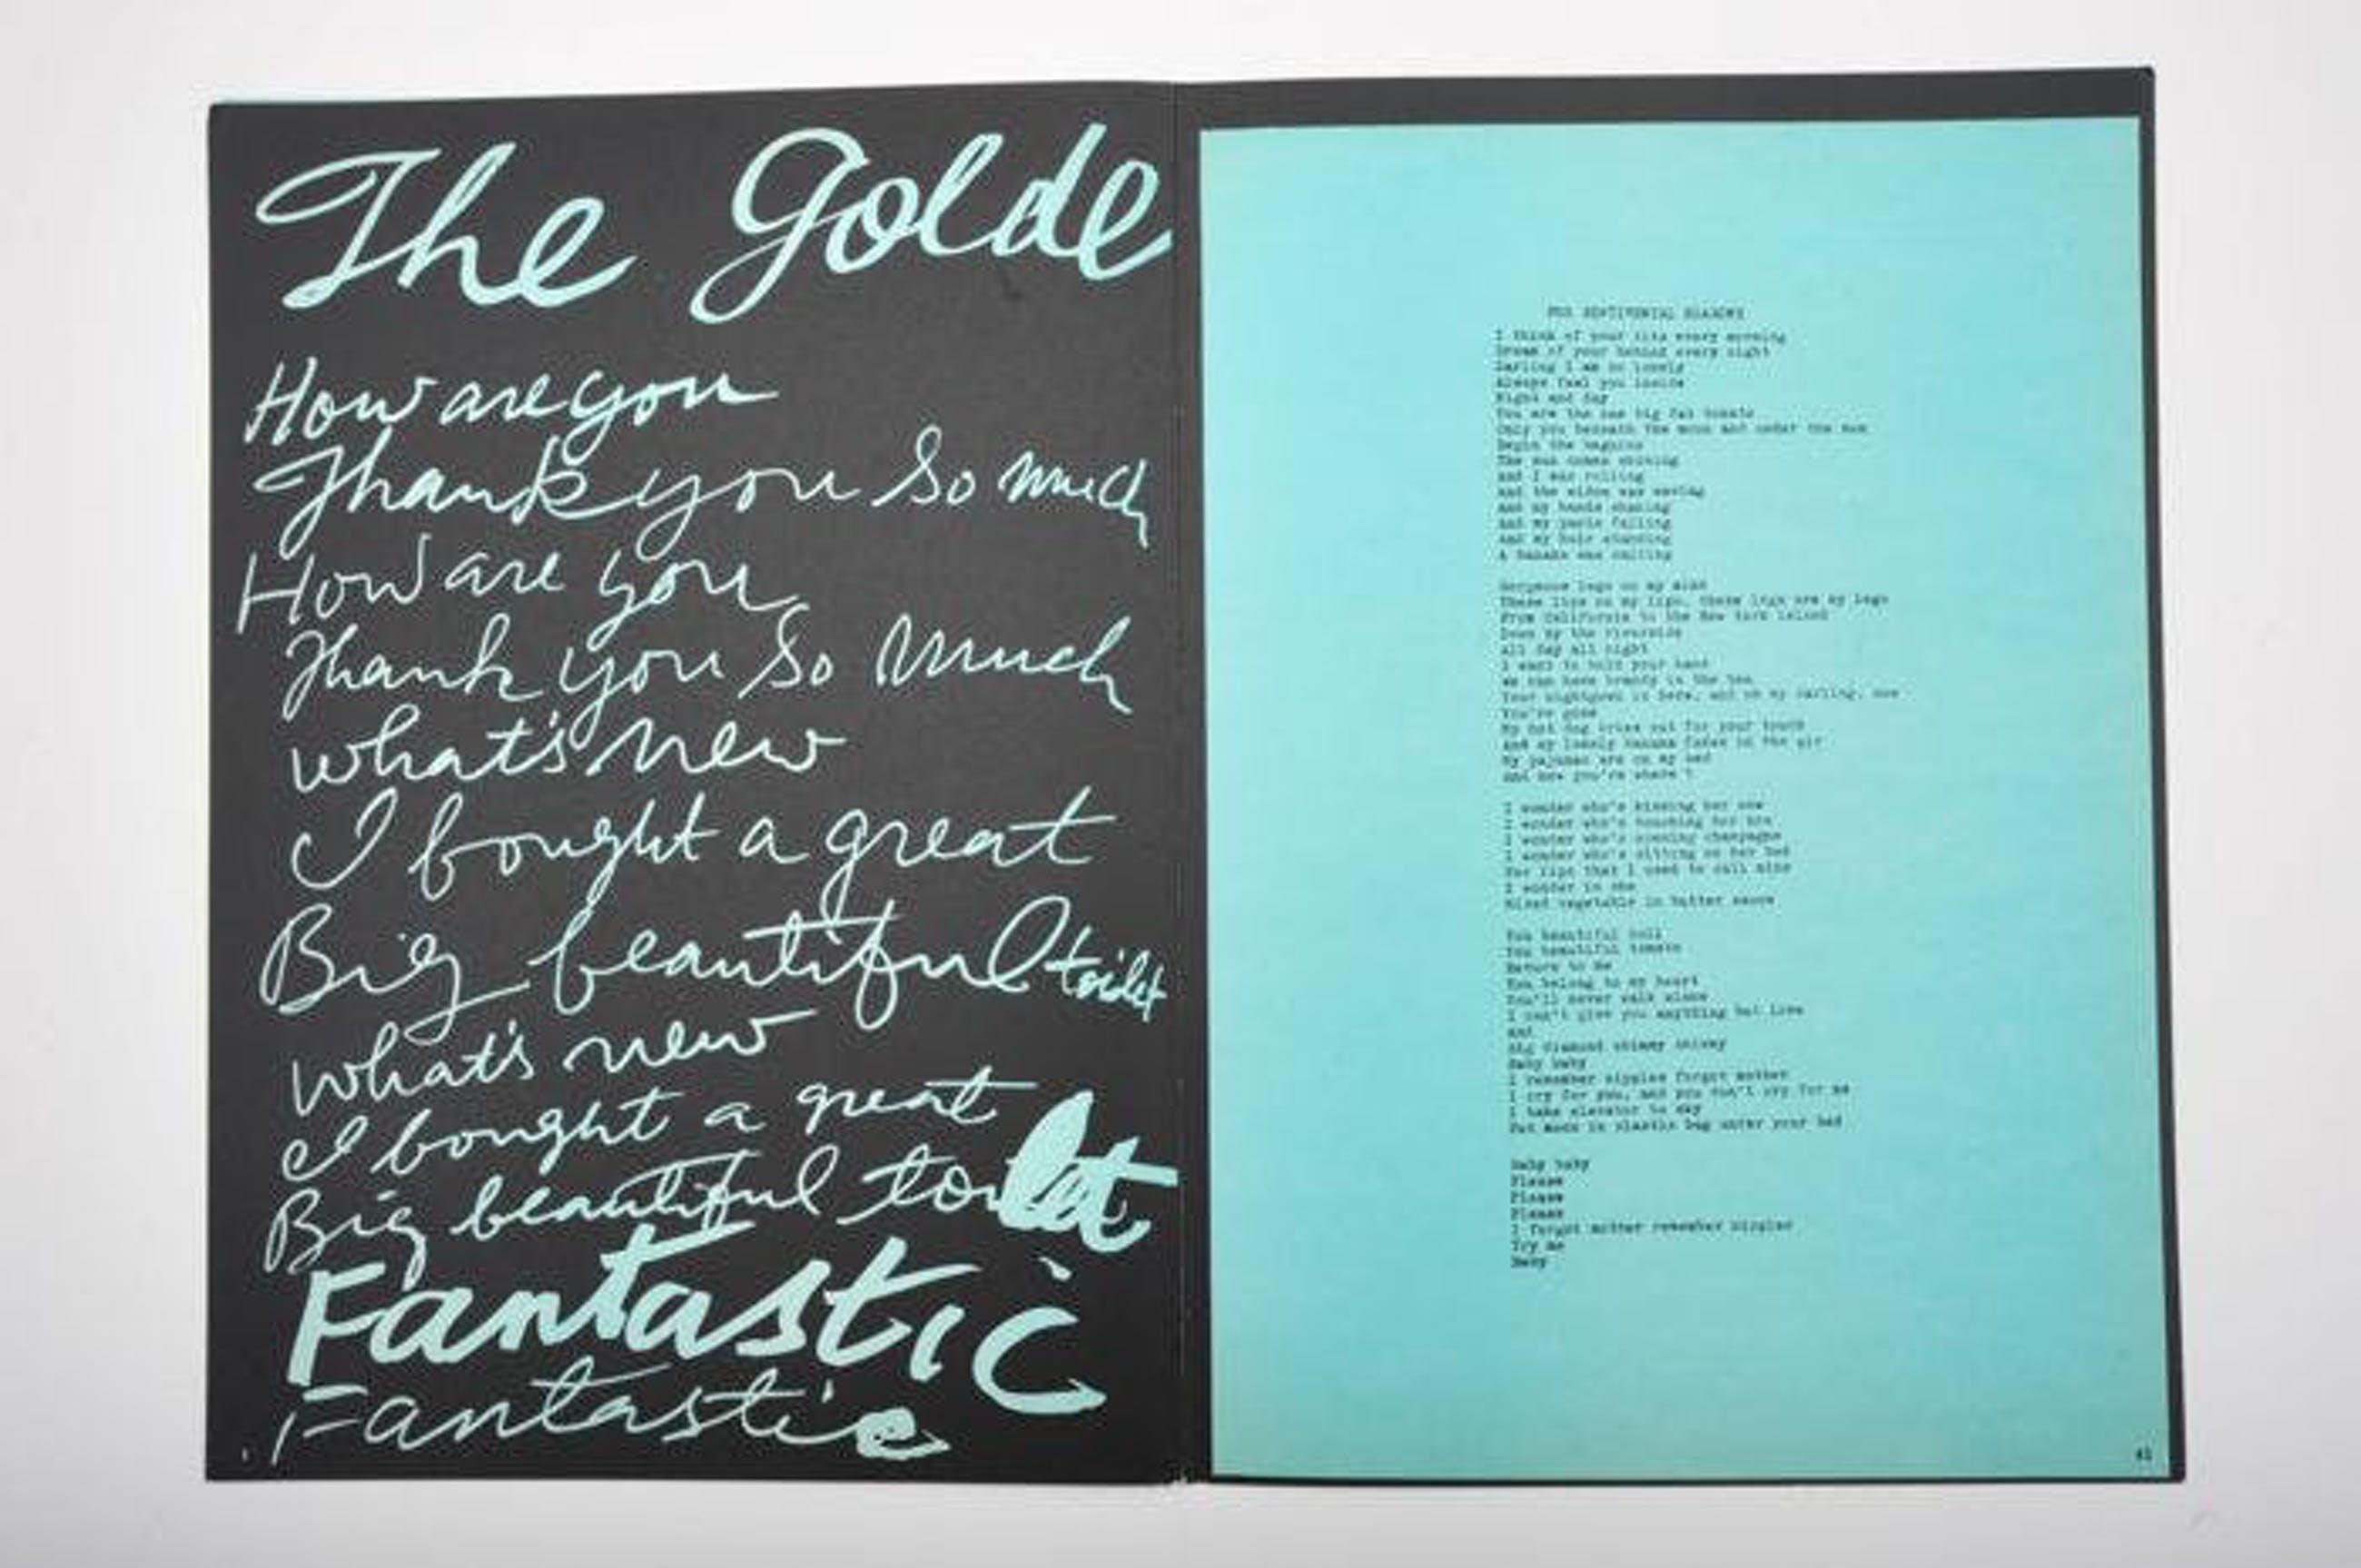 The Golde
How are you
Thank you so much
How are you
Thank you so much
what's new
I bought a great
Big beautiful toilet
what's new
I bought a great
Big beautiful toilet
Fantastic
Fantastic
FOR SENTIMENTAL REASONS
I think of your lips every morning
Dream of your behind every night
Darling I am so lonely
Always feel you inside
Night and day
You are the one big fat tomato
Only you beneath the moon and under the sun
Begin the beguine
The sun comes shining
And I was rolling
And the
was waving
And my hands shaking
And my pants falling
And my hair standing
A banana was calling
Gorgeous legs on my mind
These lips on my lips, these legs are my legs
From California to the New York island
Down by the riverside
all day all night
I want to hold your hand
We can have brandy in the tea
Your nightgown is here, and oh my darling, now
You're gone
My hot dog cries out for your touch
And my lonely banana fades in the air
My pajamas are on my bed
And now you're where ?
I wonder who's kissing her now
I wonder who's touching her bra
I wonder who's
champagne
I wonder who's sitting on her bed
For lips that I used to call mine
I wonder is she
Mixed vegetable in butter sauce
You beautiful doll
You beautiful tomato
Return to me
You belong to my heart
You'll never walk alone
I can't give you anything but love
And
Big diamond shimmy shimmy
Baby baby
I remember nipples forgot mother
I cry for you, and you don't cry for me
I take elevator to sky
Put moon in plastic bag under your bed
Baby baby
Please
Please
Please
I forgot mother remember nipples
Try me
Baby